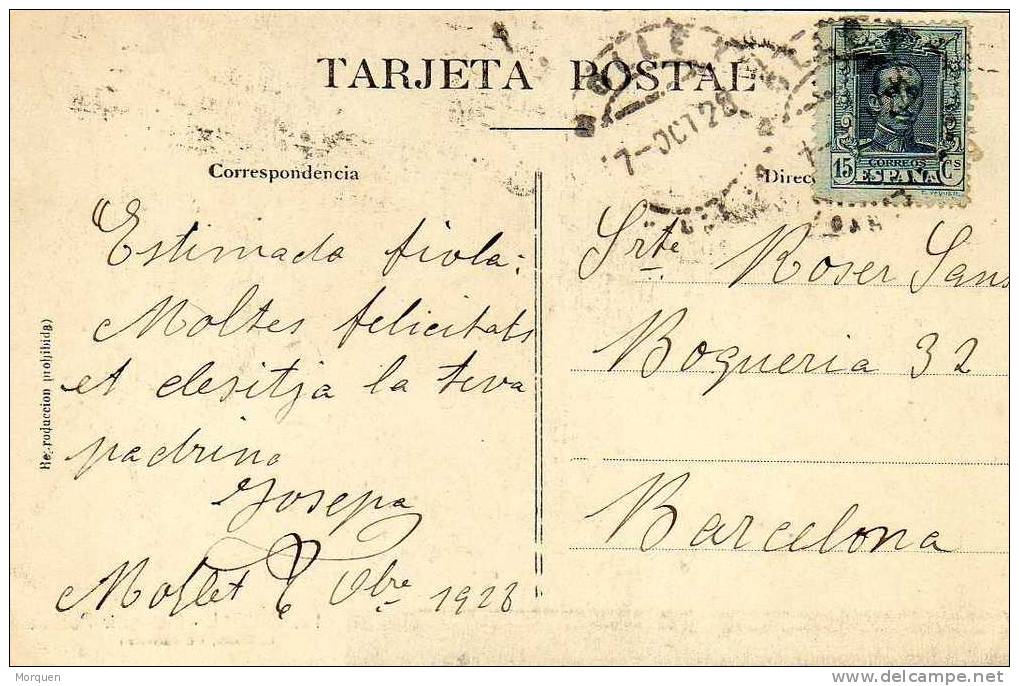 TARJETA POSTAL
Correspondencia
7-OCT 28
15 CORREOS Cts
ESPAÑA
Estimada fiola:
Moltes felicitats
et desitja la teva
padrina
Josepa
Mollet 6 Obre 1928
Srte Roser Sans
Boqueria 32
Barcelona
Reproduccion prohibida)
Morquen
delcampe.net